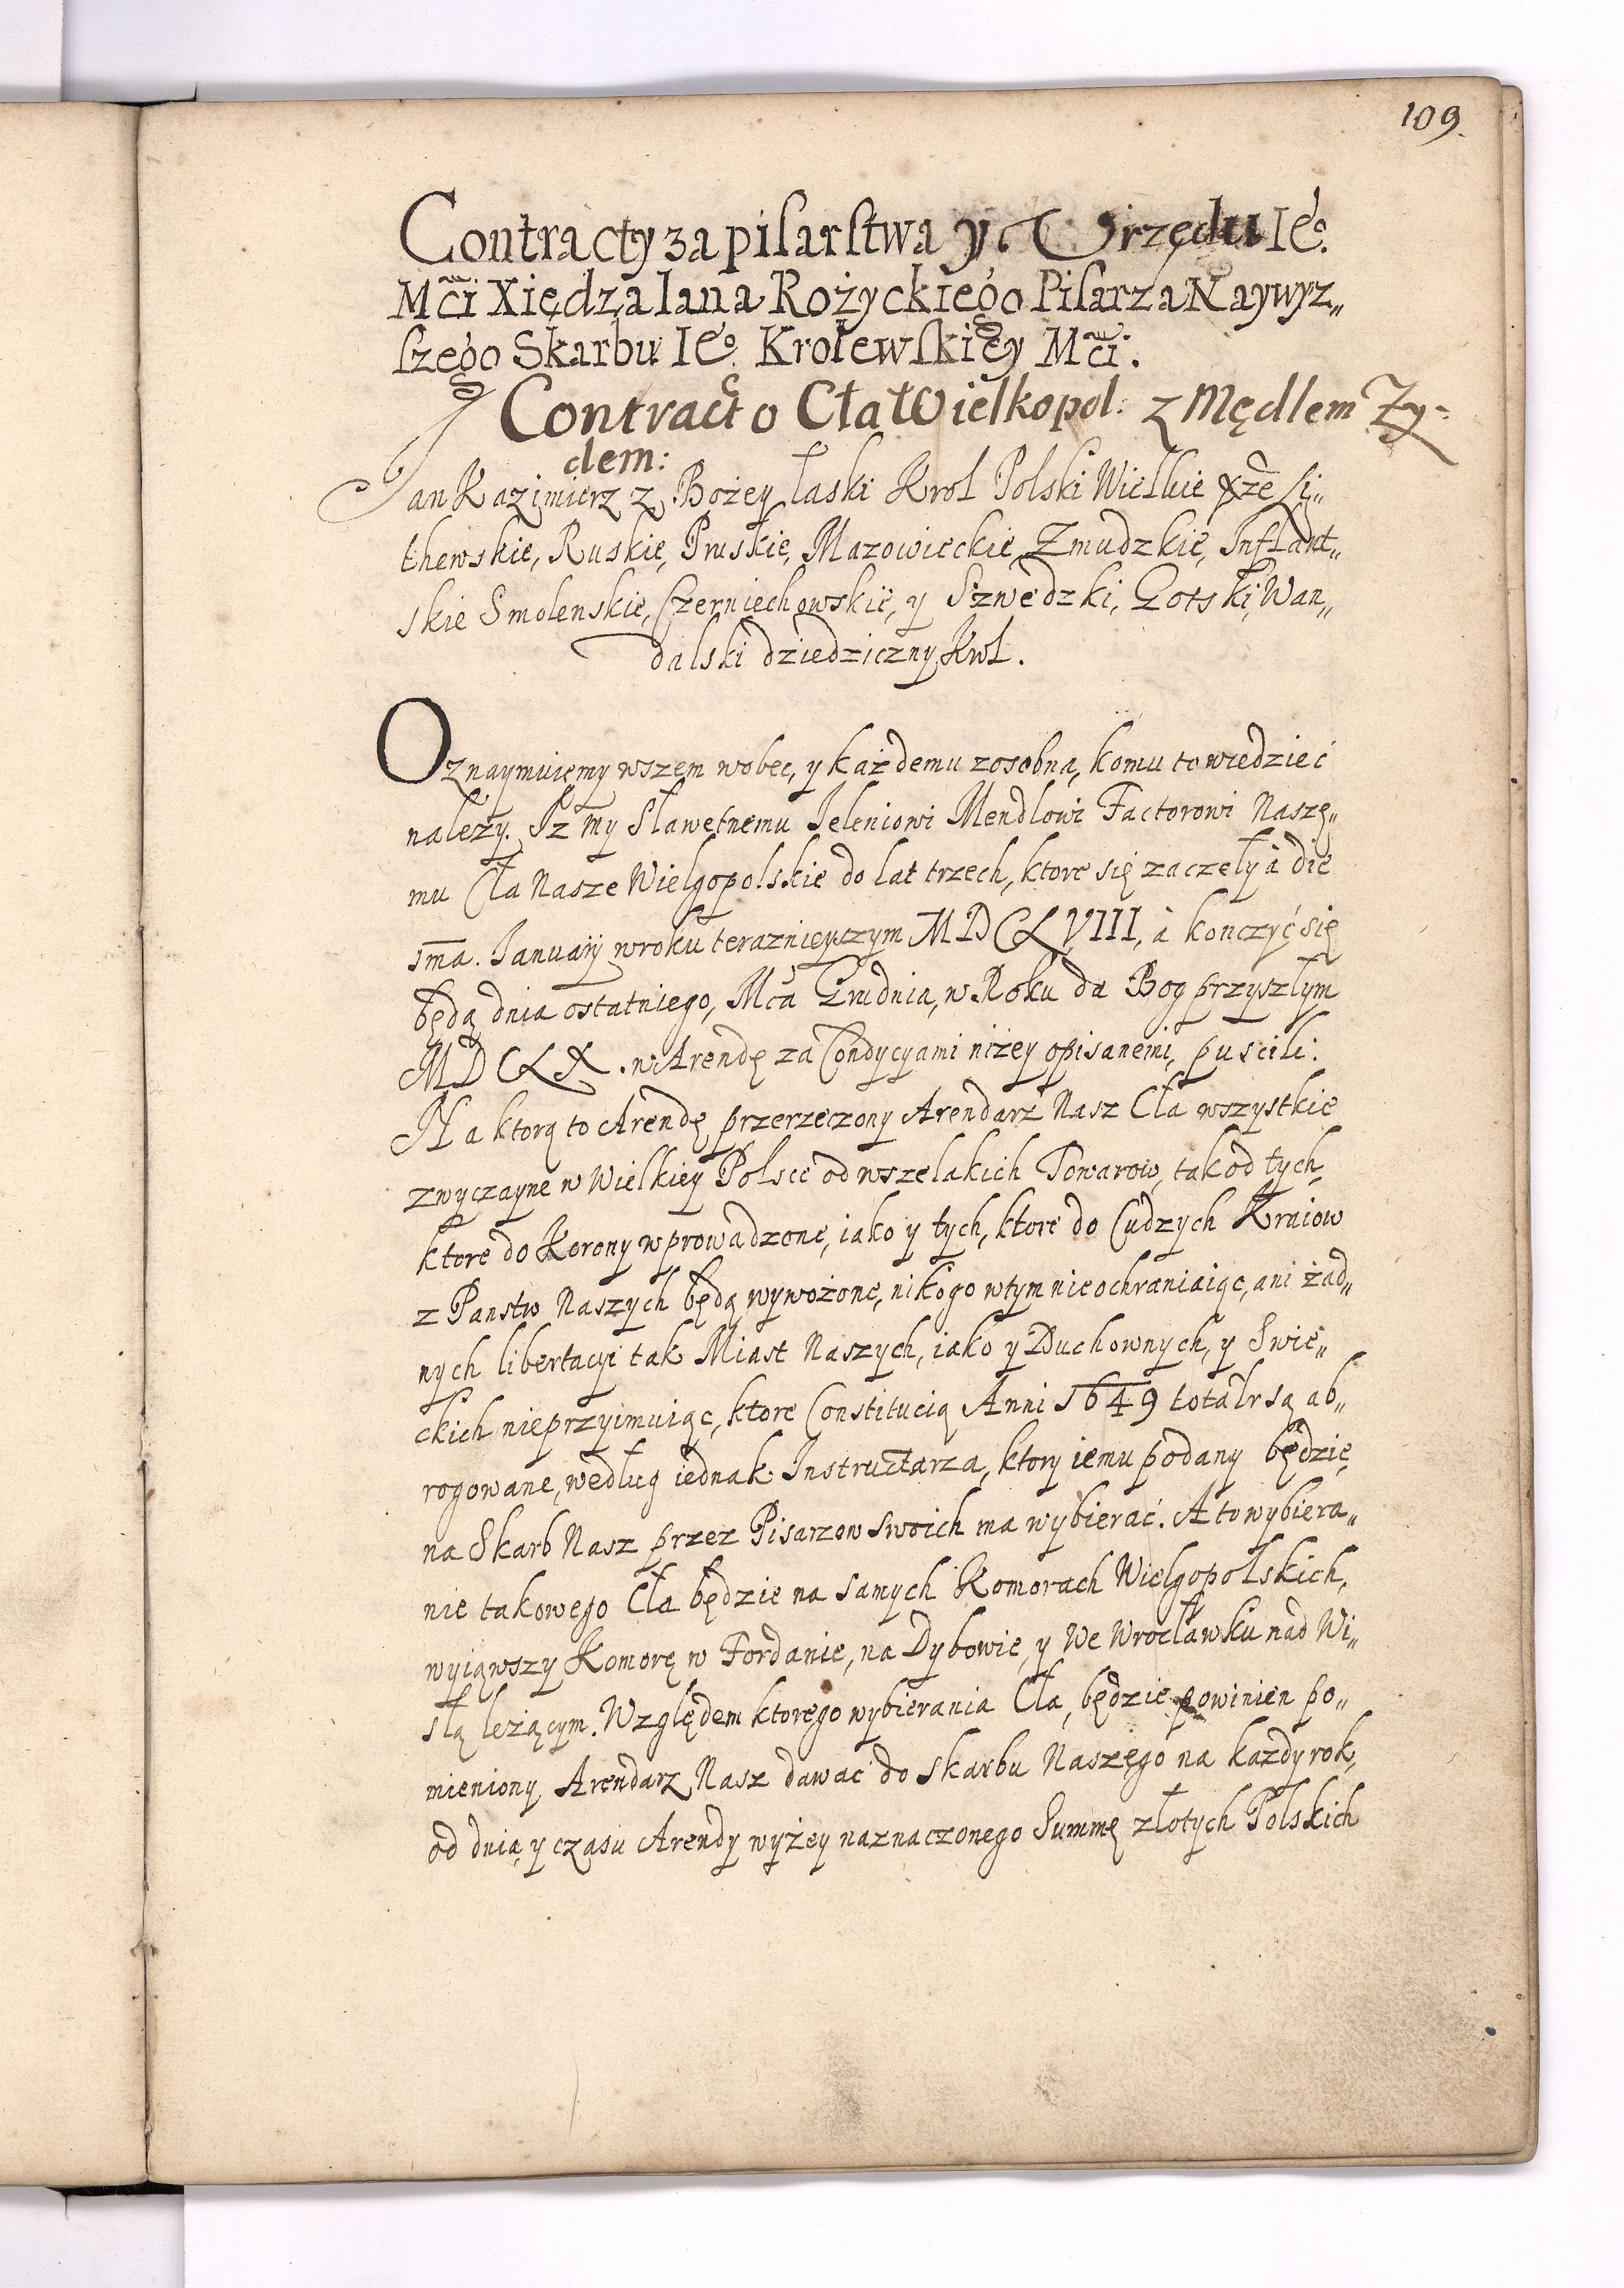 109.
Contracty za pisarstwa y Urzędu Ieº.
Mći Xiędza Iana Rożyckiego Pisarza Naywyz„
szego Skarbu Ieº. Krolewskiey Mći.
Contract o Cła Wielkopol: z Mędlem Zy-
dem:
Jan Kazimierz z Bożey łaski Krol Polski Wielkie Xże Li„
thewskie, Ruskie, Pruskie, Mazowieckie, Zmudzkie, Inflant„
skie Smolenskie, Czerniechowskie, y Szwedzki, Gotski, Wan„
dalski dziedziczny Krol.
Oznaymuięmy wszem wobec, y każdemu zosobna, komu to wiedzieć
nalezy. Iż my Sławetnemu Ieleniowi Mendlowi Factorowi Nasze„
mu Cła Nasze Wielgopolskie do lat trzech, ktore się zaczęły à die
1ma. Ianuarij w roku teraznieyszym MDCLVIII, à konczyć się
będą dnia ostatniego, Mca Grudnia, w Roku da Bog przyszłym
MDCLX. w Arendę za Condycyami niżey opisanemi, puscili:
Na ktorą to Arendę przerzeczony Arendarz Nasz Cła wszystkie
zwyczayne w Wielkiey Polsce od wszelakich Towarow, tak od tych
ktore do Korony wprowadzone, iako y tych, ktore do Cudzych Kraiow
z Panstw Naszych będą wywożone, nikogo wtym nieochraniaiąc, ani żad„
nych libertacyi tak Miast Naszych, iako y Duchownych, y Swie„
ckich nieprzyimuiąc, ktore Constitucią Anni 1649 totalr są ab„
rogowane, według iednak Instructarza, ktory iemu podany będzie
na Skarb Nasz przez Pisarzow swoich ma wybierać. A to wybiera„
nie takowego Cła będzie na samych Komorach Wielgopolskich,
wyiąwszy Komorę w Fordanie, na Dybowie, y We Wrocławku nad Wi„
słą leżącym. Względem ktorego wybierania Cła, będzie powinien po„
mieniony Arendarz Nasz dawać do skarbu Naszego na kazdy rok,
od dnia, y czasu Arendy wyżey naznaczonego Summę złotych Polskich